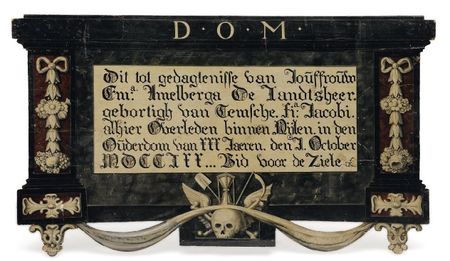 D·O·M·
Dit tot gedagtenisse van Jouffrouw
Em.ª Amelberga De Landtsheer.
gebortigh van Temsche. fi.ª Jacobi.
alhier Overleden binnen in den
Ouderdom van XXX Jaeren. den 1. October
MDCCLXX... Bid voor de Ziele